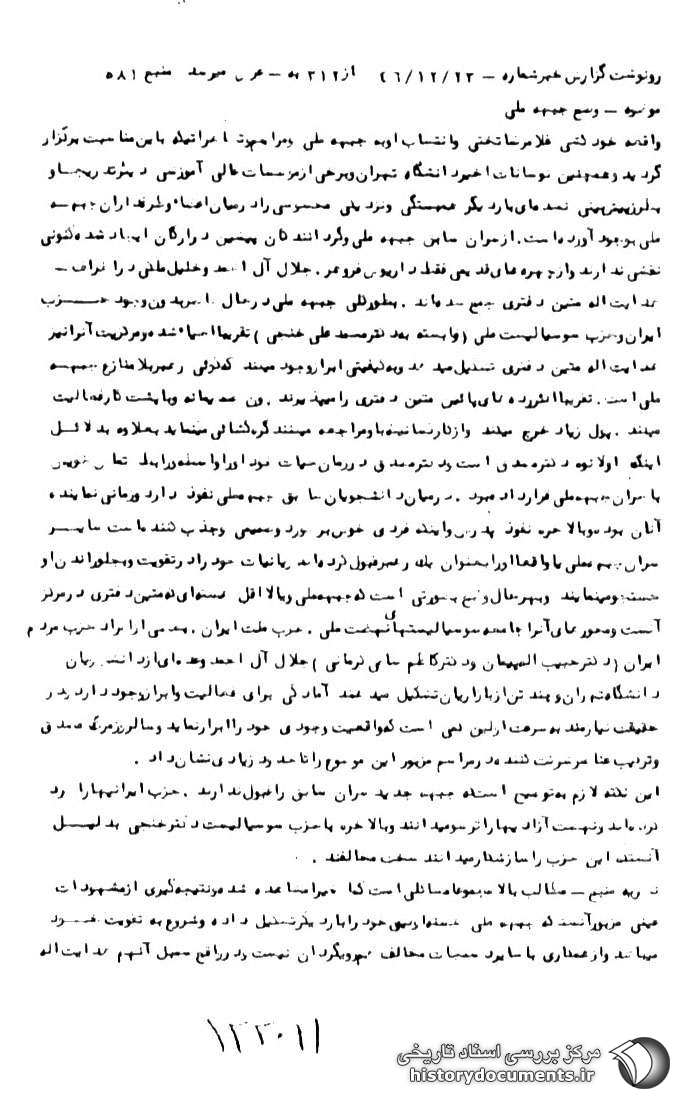 رونوشت گزارش خبر شماره – ۴۶/۱۲/۲۳ از ۳۱۲ به – عرض میرسد منبع ۵۸۱
موضوع – وضع جبهه ملی
واقعه خودکشی غلامرضا تختی وانتساب او به جبهه ملی ومراسم و تظاهراتیکه باین مناسبت برگزار
گردید وهمچنین نوسانات اخیر دانشگاه تهران وبرخی ازموسسات عالی آموزشی دیگرتدریجا و
بطور پیش بینی نشده ای بار دیگر همبستگی ونزدیکی محسوسی را در میان اعضاء وطرفداران جبهه
ملی بوجود آورده است . از سران سابق جبهه ملی وگردانندگان پیشین در ارکان ایجاد شده کنونی
نقشی ندارند واز چهره های قدیمی فقط داریوش فروهر . جلال آل احمد وخلیل ملکی در اطراف –
هدایت اله متین دفتری جمع شده اند . بطورکلی جبهه ملی در حال حاضر بدون وجود حزب
ایران وحزب سوسیالیست ملی ( وابسته به دکتر محمد علی خنجی ) تقریبا احیاء شده ومرکزیت آنرا نیز
هدایت اله متین دفتری تشکیل میدهد وبه کیفیتی ابراز وجود میکند که گوئی رهبر بلامنازع جبهه
ملی است . تقریبا اکثر رده های پائین متین دفتری را میپذیرند . وی صمیمانه وبا پشت کار فعالیت
میکند . پول زیاد خرج میکند واز کارکسانیکه باو مراجعه میکنند گره گشائی مینماید بعلاوه به دلائل
اینکه اولا نوه دکتر مصدق است و دکتر مصدق در زمان حیات خود او را واسطه و رابط تماس خویش
با سران جبهه ملی قرار داده بود . در میان دانشجویان سابق جبهه ملی نفوذ دارد و زمانی نماینده
آنان بوده وبالاخره نفوذ پدرش واینکه فردی خوش برخورد وصمیمی وجذب کننده است سایر
سران جبهه ملی یا واقعا او را بعنوان یک رهبر قبول کرده اند یا نیات خود را در تقویت وبجلو راندن او
جستجو مینمایند وبهر حال وضع بصورتی است که جبهه ملی ویا لااقل دسته ای که متین دفتری در مرکز
آنست ومحورهای آنرا جامعه سوسیالیستهای نهضت ملی . حزب ملت ایران . جمعی از افراد حزب مردم
ایران ( دکتر حبیب اله پیمان ودکتر کاظم سامی کرمانی ) جلال آل احمد وعده ای از دانشجویان
دانشگاه تهران وچند تن از بازاریان تشکیل میدهند آمادگی برای فعالیت وابراز وجود دارد و در
حقیقت نیازمند به سرعت اولین نقطی است که واقعیت وجودی خود را ابراز نماید وسالروز مرگ مصدق
وترتیب عناصر شرکت کننده در مراسم مزبور این موضوع را تا حدود زیادی نشان داد .
این نکته لازم به توضیح است که جبهه جدید سران سابق را قبول ندارند . حزب ایرانیها را رد
کرده اند ونهضت آزادیها را ترسو میدانند وبالاخره با حزب سوسیالیست دکتر خنجی به دلیل
آنستکه این حزب را سازشکار میدانند سخت مخالفند .
نظریه منبع – مطالب بالا مجموعه مسائلی است که اخیرا مشاهده شده ونتیجه گیری از مشهودات
عینی مزبور آنست که جبهه ملی هسته اولیه خود را بار دیگر تشکیل داده وشروع به تقویت خود
مینماید واز همکاری با سایر دستجات مخالف هم رویگردان نیست ودر واقع معنی آنهم هدایت اله
۱۳۳۰۱۱
مرکز بررسی اسناد تاریخی
historydocuments.ir